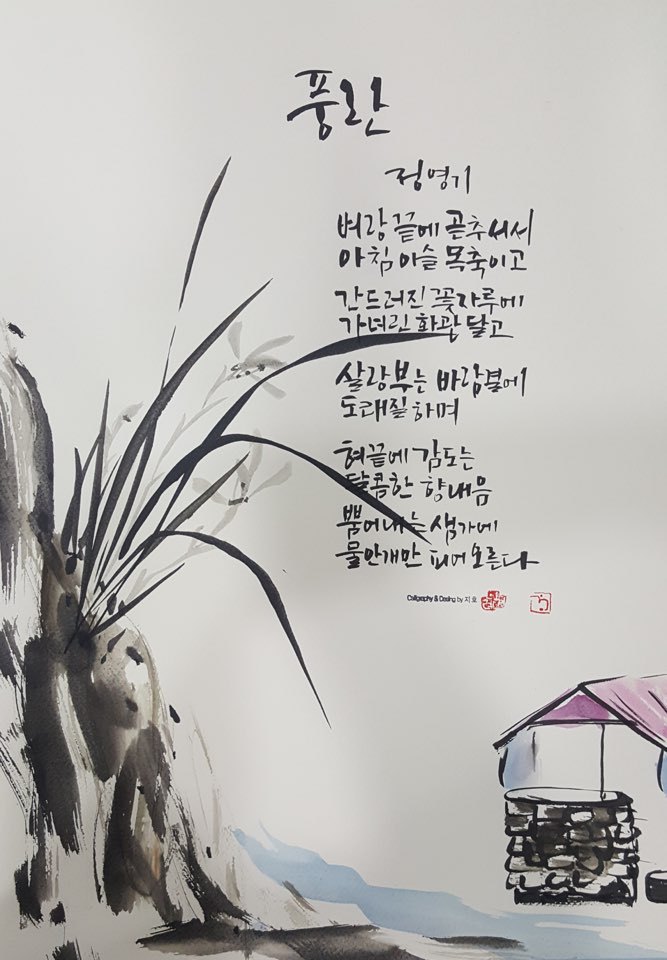 풍란
정영기
벼랑 끝에 곧추서서
아침 이슬 목축이고
간드러진 꽃자루에
가녀린 화관 달고
살랑 부는 바람결에
도래질 하며
혀끝에 감도는
달콤한 향내음
뿜어내는 샘가에
물안개만 피어오른다
Calligraphy & Desing by 지호